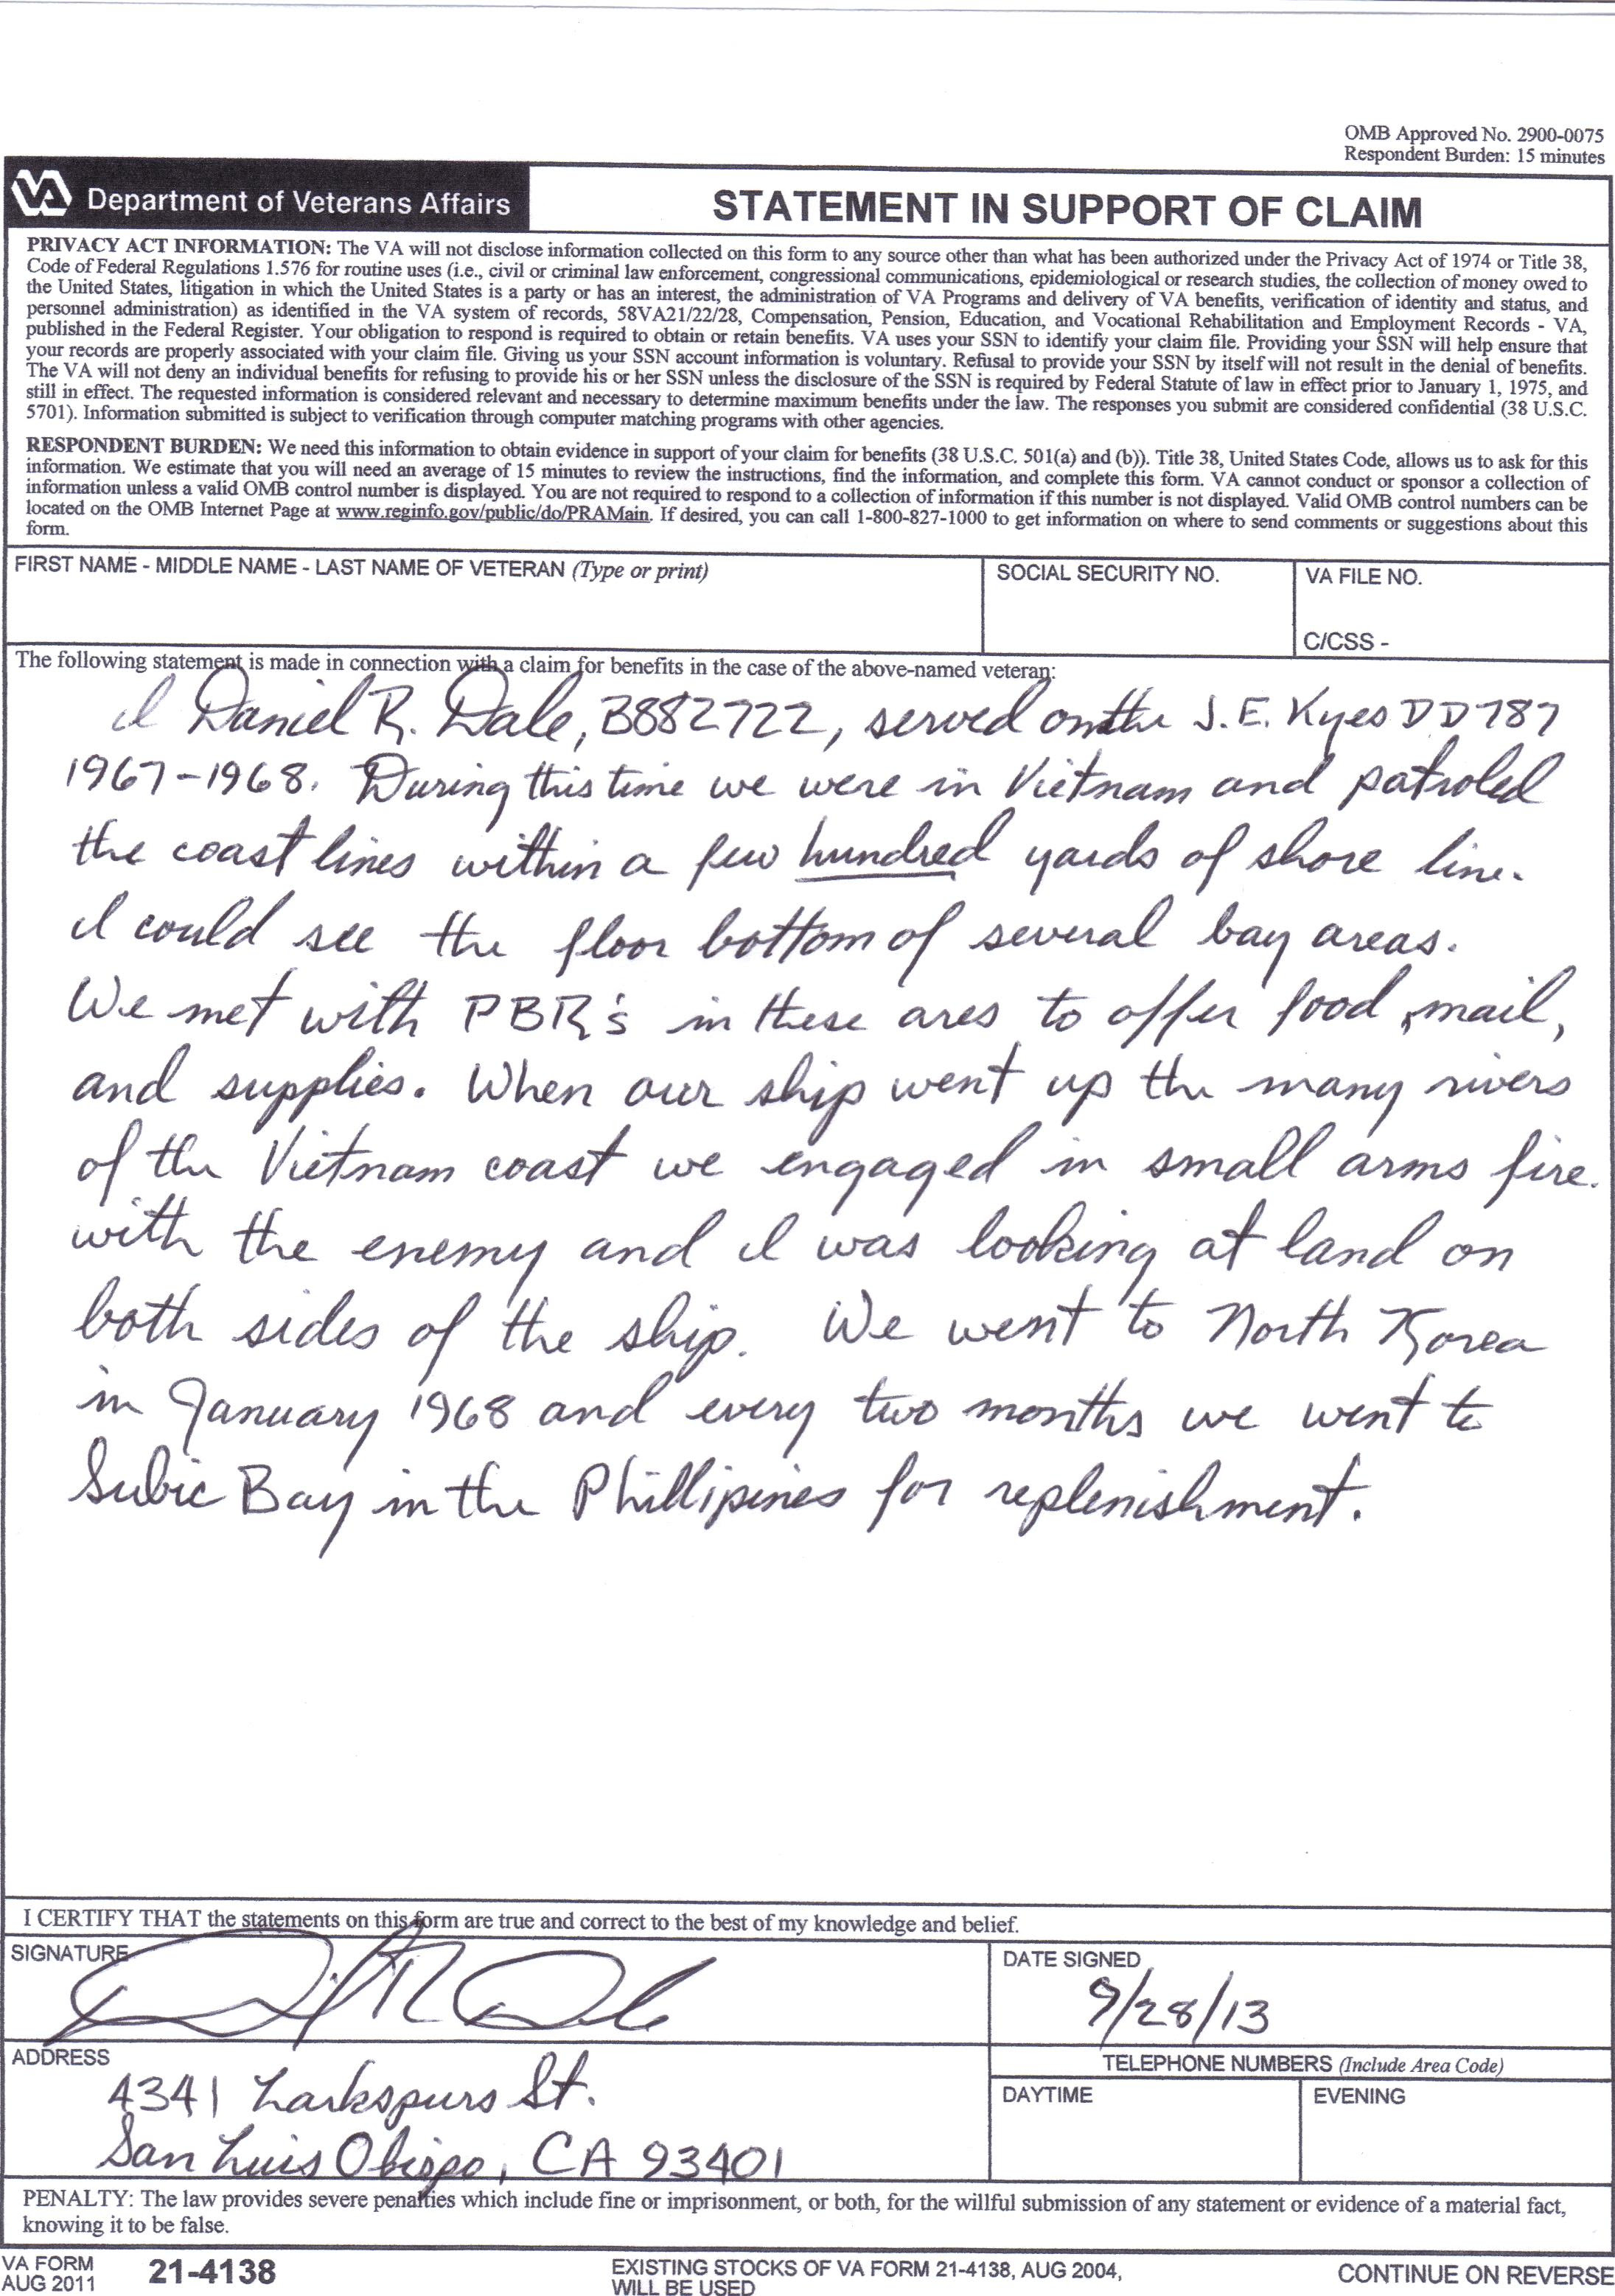 OMB Approved No. 2900-0075
Respondent Burden: 15 minutes
VA Department of Veterans Affairs
STATEMENT IN SUPPORT OF CLAIM
PRIVACY ACT INFORMATION: The VA will not disclose information collected on this form to any source other than what has been authorized under the Privacy Act of 1974 or Title 38,
Code of Federal Regulations 1.576 for routine uses (i.e., civil or criminal law enforcement, congressional communications, epidemiological or research studies, the collection of money owed to
the United States, litigation in which the United States is a party or has an interest, the administration of VA Programs and delivery of VA benefits, verification of identity and status, and
personnel administration) as identified in the VA system of records, 58VA21/22/28, Compensation, Pension, Education, and Vocational Rehabilitation and Employment Records - VA,
published in the Federal Register. Your obligation to respond is required to obtain or retain benefits. VA uses your SSN to identify your claim file. Providing your SSN will help ensure that
your records are properly associated with your claim file. Giving us your SSN account information is voluntary. Refusal to provide your SSN by itself will not result in the denial of benefits.
The VA will not deny an individual benefits for refusing to provide his or her SSN unless the disclosure of the SSN is required by Federal Statute of law in effect prior to January 1, 1975, and
still in effect. The requested information is considered relevant and necessary to determine maximum benefits under the law. The responses you submit are considered confidential (38 U.S.C.
5701). Information submitted is subject to verification through computer matching programs with other agencies.
RESPONDENT BURDEN: We need this information to obtain evidence in support of your claim for benefits (38 U.S.C. 501(a) and (b)). Title 38, United States Code, allows us to ask for this
information. We estimate that you will need an average of 15 minutes to review the instructions, find the information, and complete this form. VA cannot conduct or sponsor a collection of
information unless a valid OMB control number is displayed. You are not required to respond to a collection of information if this number is not displayed. Valid OMB control numbers can be
located on the OMB Internet Page at www.reginfo.gov/public/do/PRAMain. If desired, you can call 1-800-827-1000 to get information on where to send comments or suggestions about this
form.
FIRST NAME - MIDDLE NAME - LAST NAME OF VETERAN (Type or print)
SOCIAL SECURITY NO.
VA FILE NO.
C/CSS -
The following statement is made in connection with a claim for benefits in the case of the above-named veteran:
I Daniel R. Dale, B882722, served on the J.E. Kyes DD787
1967-1968. During this time we were in Vietnam and patroled
the coast lines within a few hundred yards of shore line.
I could see the floor bottom of several bay areas.
We met with PBR's in these ares to offer food, mail,
and supplies. When our ship went up the many rivers
of the Vietnam coast we engaged in small arms fire.
with the enemy and I was looking at land on
both sides of the ship. We went to North Korea
in January 1968 and every two months we went to
Subic Bay in the Phillipines for replenishment.
I CERTIFY THAT the statements on this form are true and correct to the best of my knowledge and belief.
SIGNATURE
DATE SIGNED
9/28/13
ADDRESS
4341 Larkspurs St.
San Luis Obispo, CA 93401
TELEPHONE NUMBERS (Include Area Code)
DAYTIME
EVENING
PENALTY: The law provides severe penalties which include fine or imprisonment, or both, for the willful submission of any statement or evidence of a material fact,
knowing it to be false.
VA FORM
AUG 2011
21-4138
EXISTING STOCKS OF VA FORM 21-4138, AUG 2004,
WILL BE USED
CONTINUE ON REVERSE